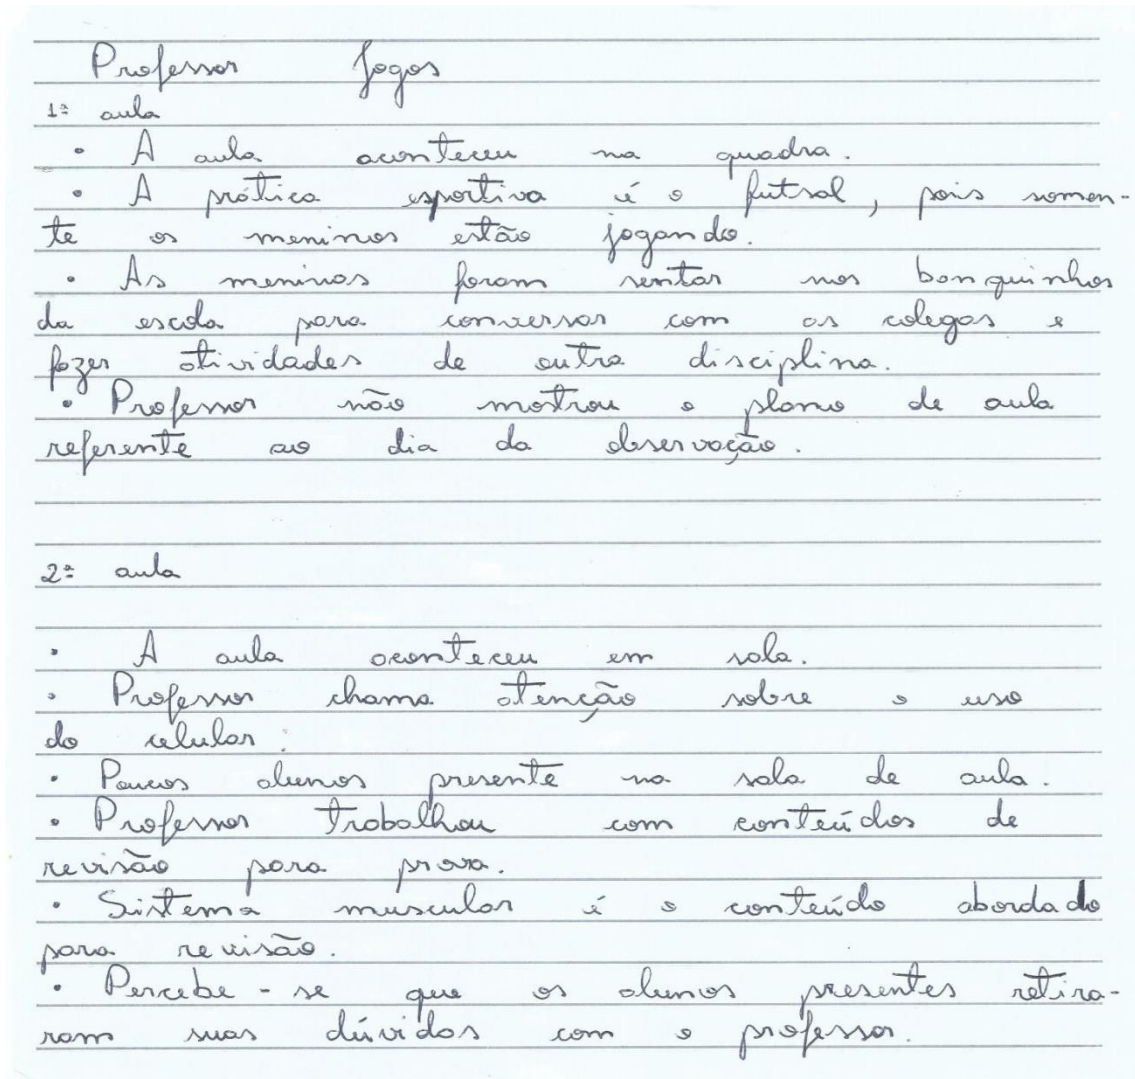 Professor Jogos
1ª aula
• A aula aconteceu na quadra.
• A prática esportiva é o futsal, pois somen-
te os meninos estão jogando.
• As meninas foram sentar nos banquinhos
da escola para conversar com as colegas e
fazer atividades de outra disciplina.
• Professor não mostrou o plano de aula
referente ao dia da observação.
2ª aula
• A aula aconteceu em sala.
• Professor chama atenção sobre o uso
do celular.
• Poucos alunos presente na sala de aula.
• Professor trabalhou com conteúdos de
revisão para prova.
• Sistema muscular é o conteúdo abordado
para revisão.
• Percebe-se que os alunos presentes retira-
ram suas dúvidas com o professor.